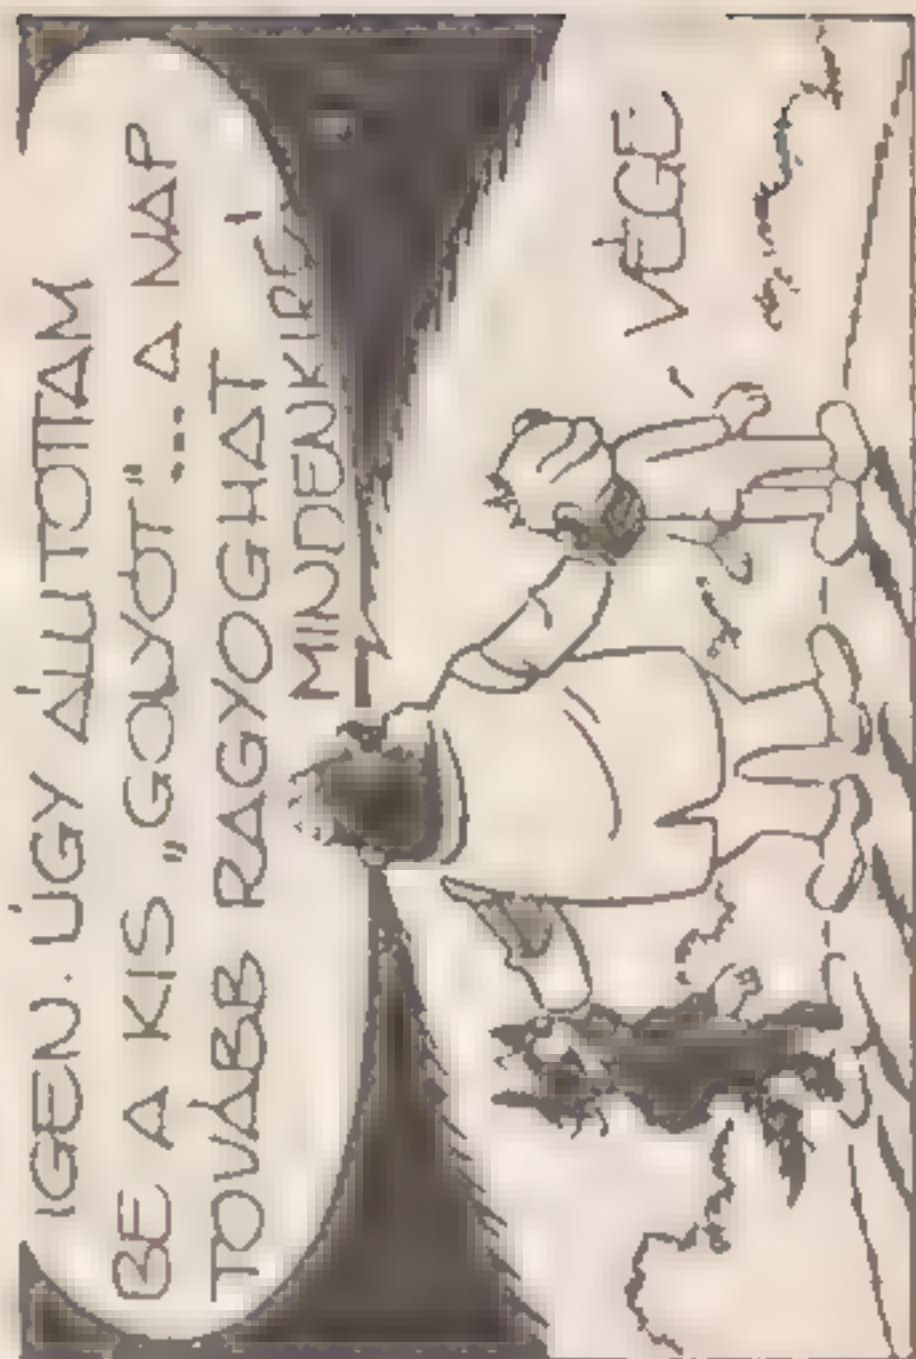 IGEN. ÚGY ÁLLÍTOTTAM
BE A KIS „GOLYÓT"... A NAP
TOVÁBB RAGYOGHAT
MINDENKIRE!
VÉGE